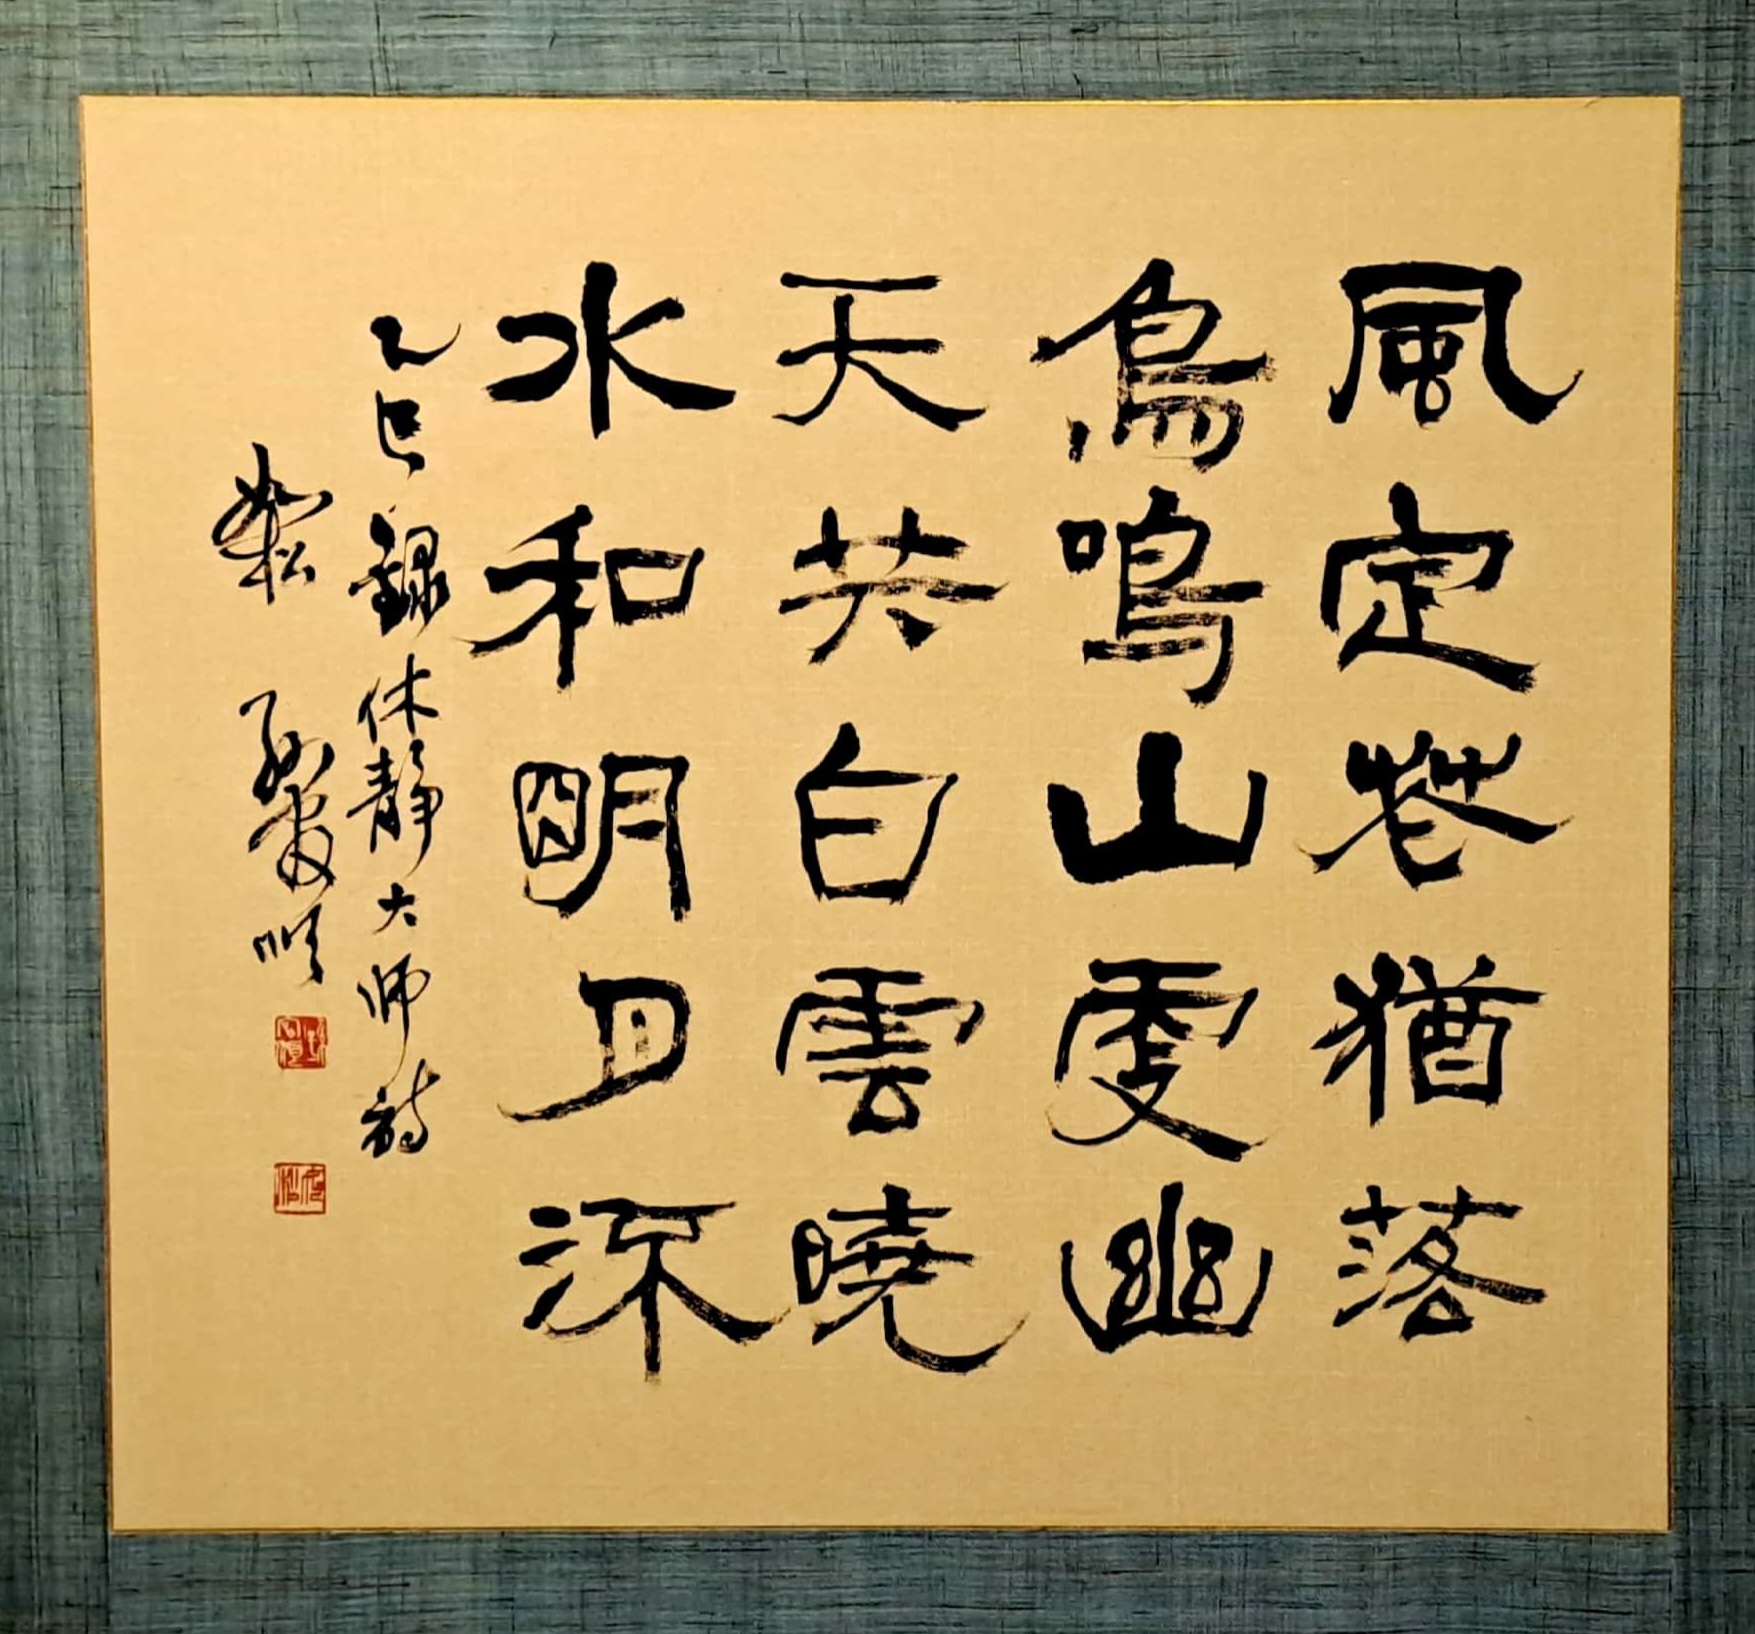 風定花猶落
鳥鳴山更幽
天共白雲曉
水和明月流
乙巳 錄 休靜大師詩
松